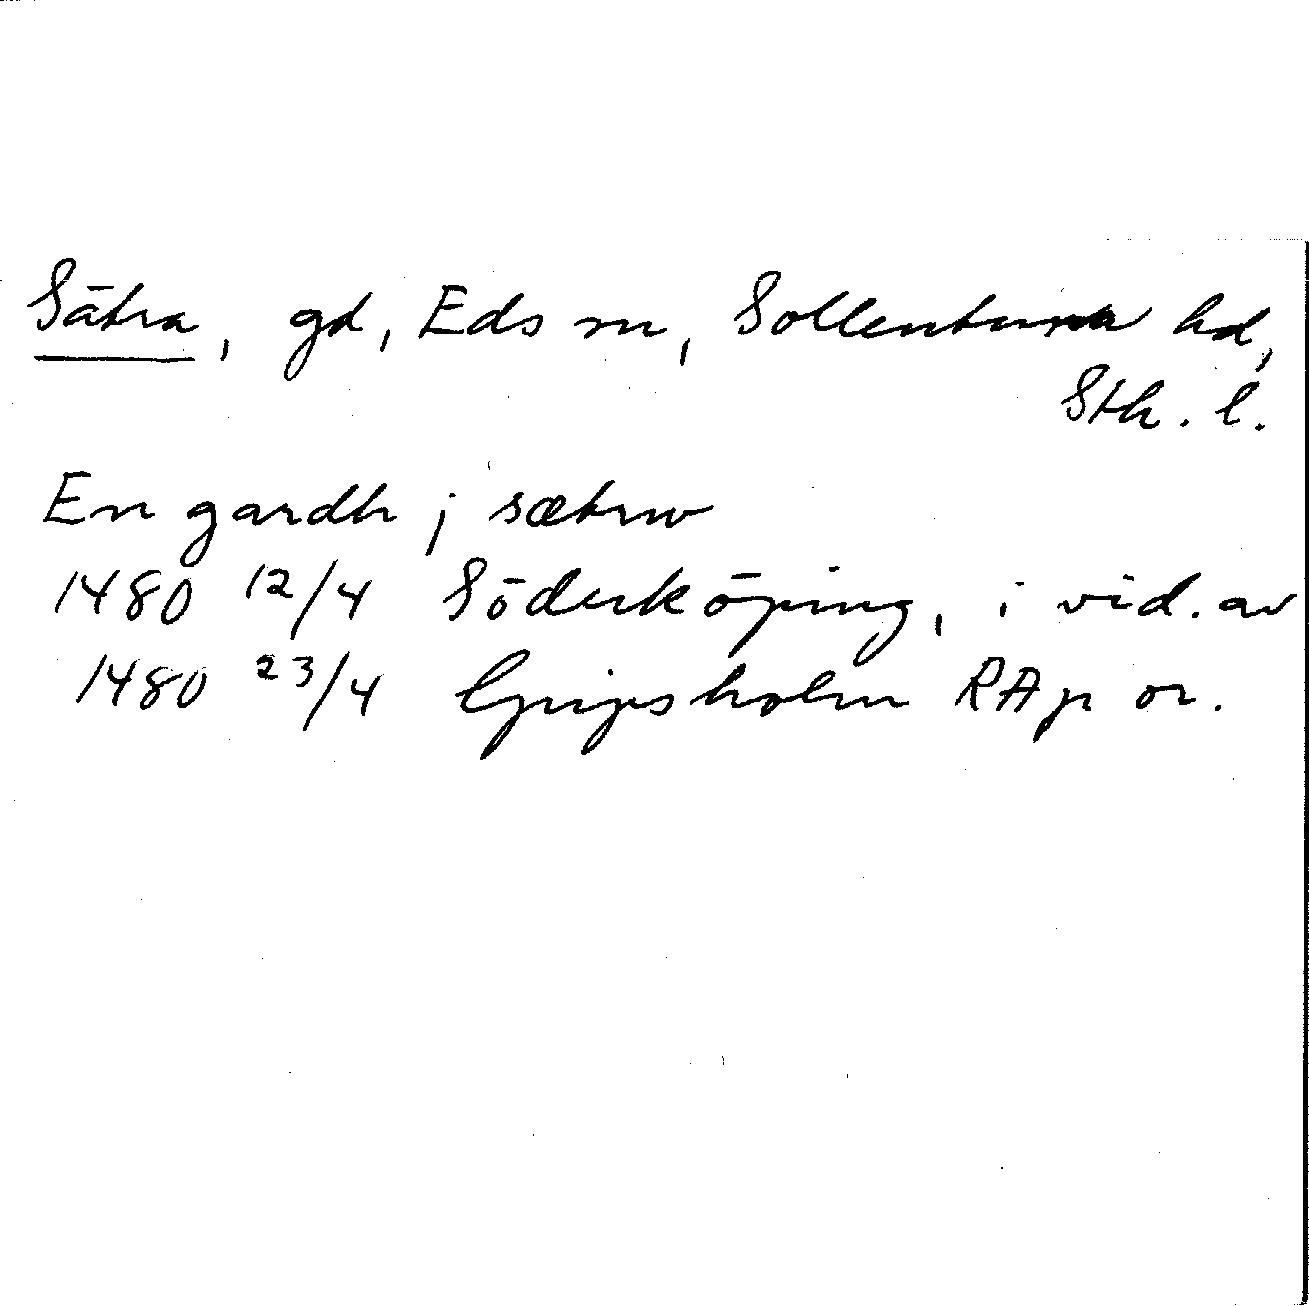 Sätra, gd, Eds sn, Sollentuna hd,
Sth. l.
En gardh j sætrw
1480 12/4 Söderköping, i vid. av
1480 23/4 Gripsholm RAp or.